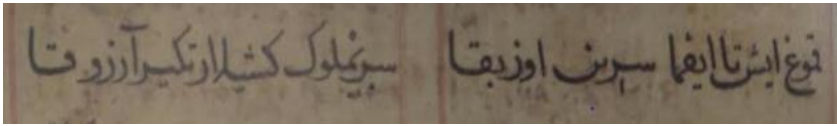 قموغ ایش تا ایفما سرین اوز بقا سریملوک کشیلار تکیر آرزوقا